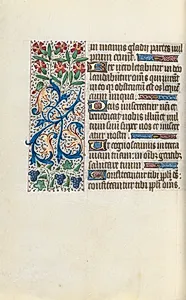 in manus gladii partes vul
pium erunt
Rex vero letabitur in deo
laudabuntur omnes qui iurant
in eo quia obstructum est os loque
cium iniqua
Deus misereatur nostri et
benedicat nobis illuminet vul
tum suum super nos et misere
atur nostri
Ut cognoscamus in terra
viam tuam in omnibus gentibus
salutare tuum
Confiteantur tibi ppli
confiteantur tibi ppli